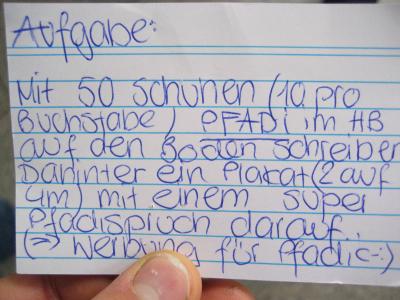 Aufgabe:
Mit 50 schuhen (10 pro
Buchstabe) PFADi im HB
auf den Boden schreiben
Dahinter ein Plakat (2 auf
4m) mit einem super
Pfadispruch darauf.
(=> Werbung für Pfadi :-)